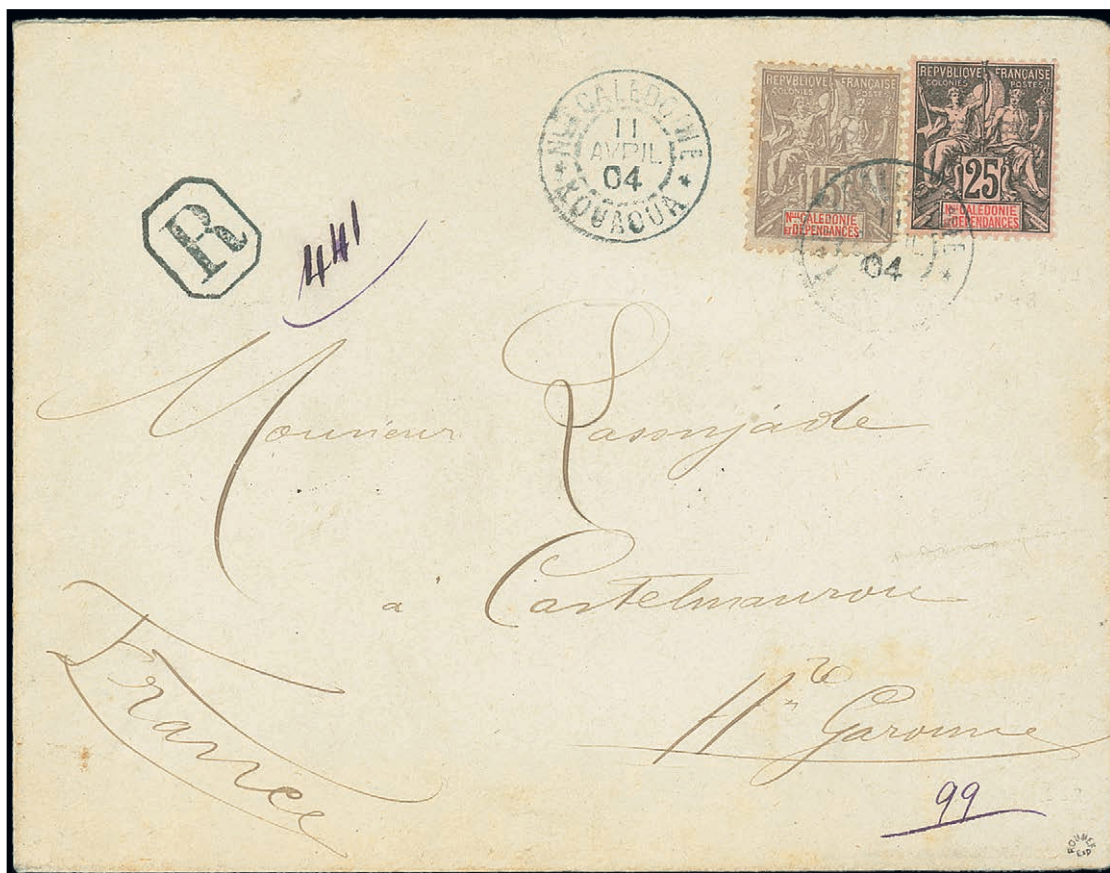 Nlle CALEDONIE
11
AVRIL
04
KOUAOUA
REPVBLIQVE FRANÇAISE
COLONIES POSTES
15
Nlle CALEDONIE
ET DÉPENDANCES
REPVBLIQVE FRANÇAISE
COLONIES POSTES
25
Nlle CALEDONIE
ET DÉPENDANCES
11
04
R
441
Monsieur
à Castelmaurou
Hte Garonne
France
99
ROUMET
EXP